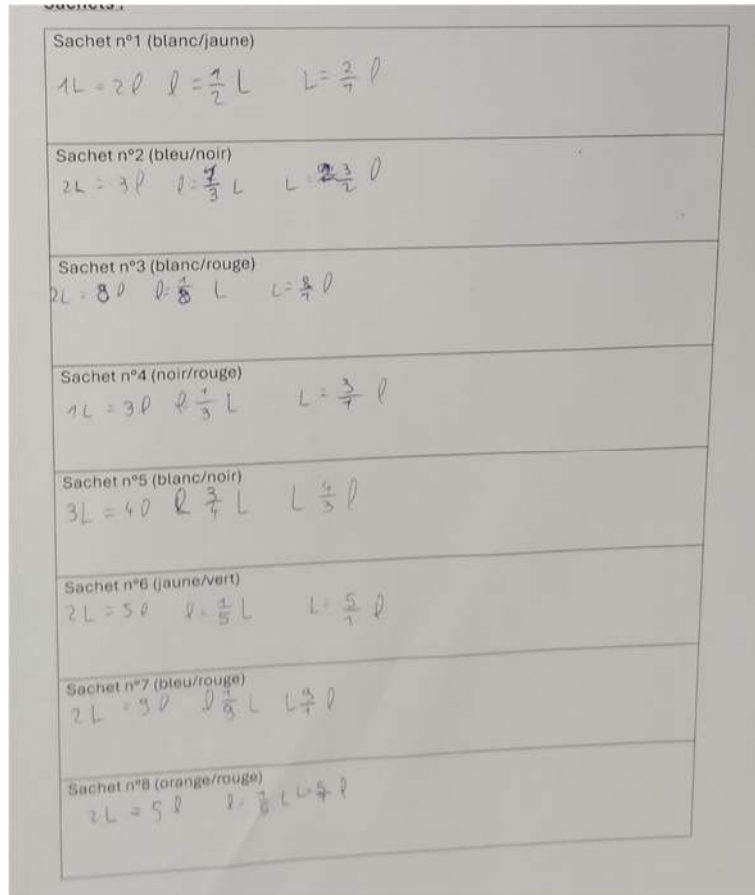 Sachets :
Sachet n°1 (blanc/jaune)
1L = 2l l = 1/2 L L = 2/1 l
Sachet n°2 (bleu/noir)
2L = 3l L = 3/2 l
Sachet n°3 (blanc/rouge)
2L = 8l l = 1/8 L L = 8/1 l
Sachet n°4 (noir/rouge)
1L = 3l l = 1/3 L L = 3/1 l
Sachet n°5 (blanc/noir)
3L = 4l l 3/4 L L 4/3 l
Sachet n°6 (jaune/vert)
2L = 5l l = 1/5 L L = 5/1 l
Sachet n°7 (bleu/rouge)
2L = 9l l 1/9 L L 9/1 l
Sachet n°8 (orange/rouge)
2L = 5l